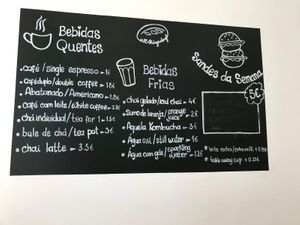 Bebidas
Quentes
• café/single espresso - 1€
• café duplo/double coffee - 1.8€
• Abatanado/Americano - 1.8€
• Café com leite/white coffee - 2.2€
• chá individual/tea for 1 - 1.5€
• bule de chá/tea pot - 3€
• chai latte - 3.5€
Bebidas
Frias
• chai gelado/iced chai - 4€
• Sumo de laranja/orange juice - 2€
• Aquela Kombucha - 3€
• Água osi/still water - 1€
• Água com gás/sparkling water - 1.2€
Sandes da Semana
5€
• leite extra/extra milk +
• take away cup + 0.25€